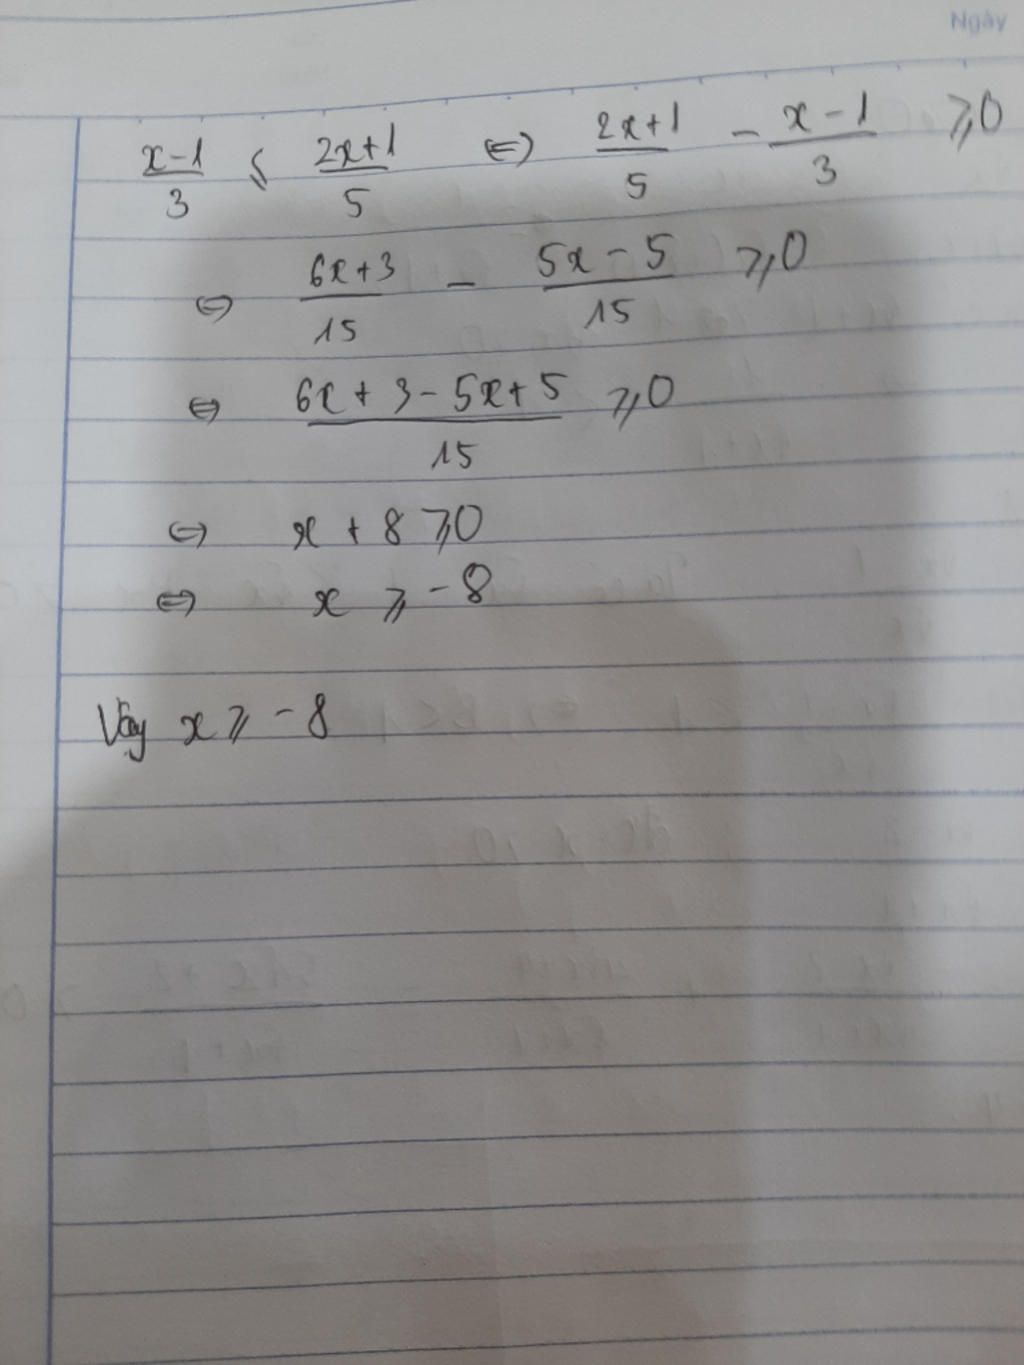 Ngày
x-1/3 ≤ 2x+1/5 ⇔ 2x+1/5 - x-1/3 ≥0
⇔ 6x+3/15 - 5x-5/15 ≥0
⇔ 6x+3-5x+5/15 ≥0
⇔ x+8 ≥0
⇔ x ≥ -8
Vậy x ≥ -8